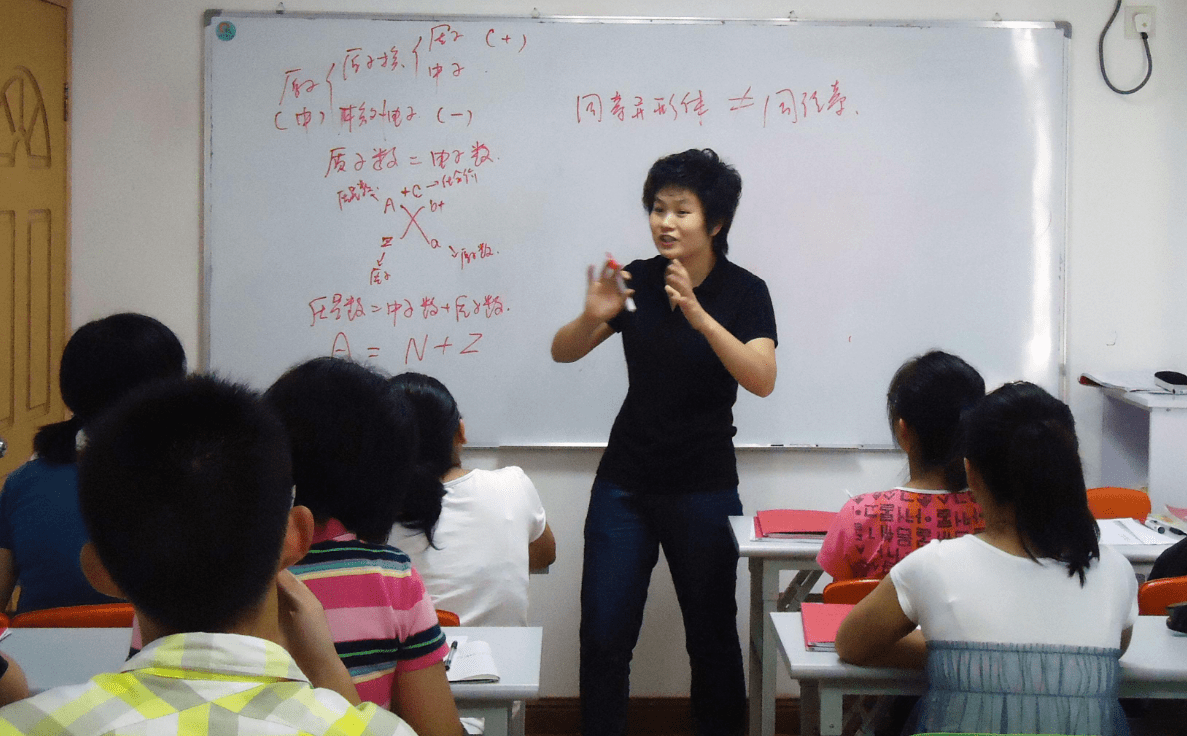 原子 { 原子核 { 质子 (+)
中子
(中) 核外电子 (-)
质子数 = 电子数.
质量数 +C → 化合价
A b+
Z a → 原子数.
↓
质子
质量数 = 中子数 + 质子数.
A = N + Z
同素异形体 ≠ 同位素.